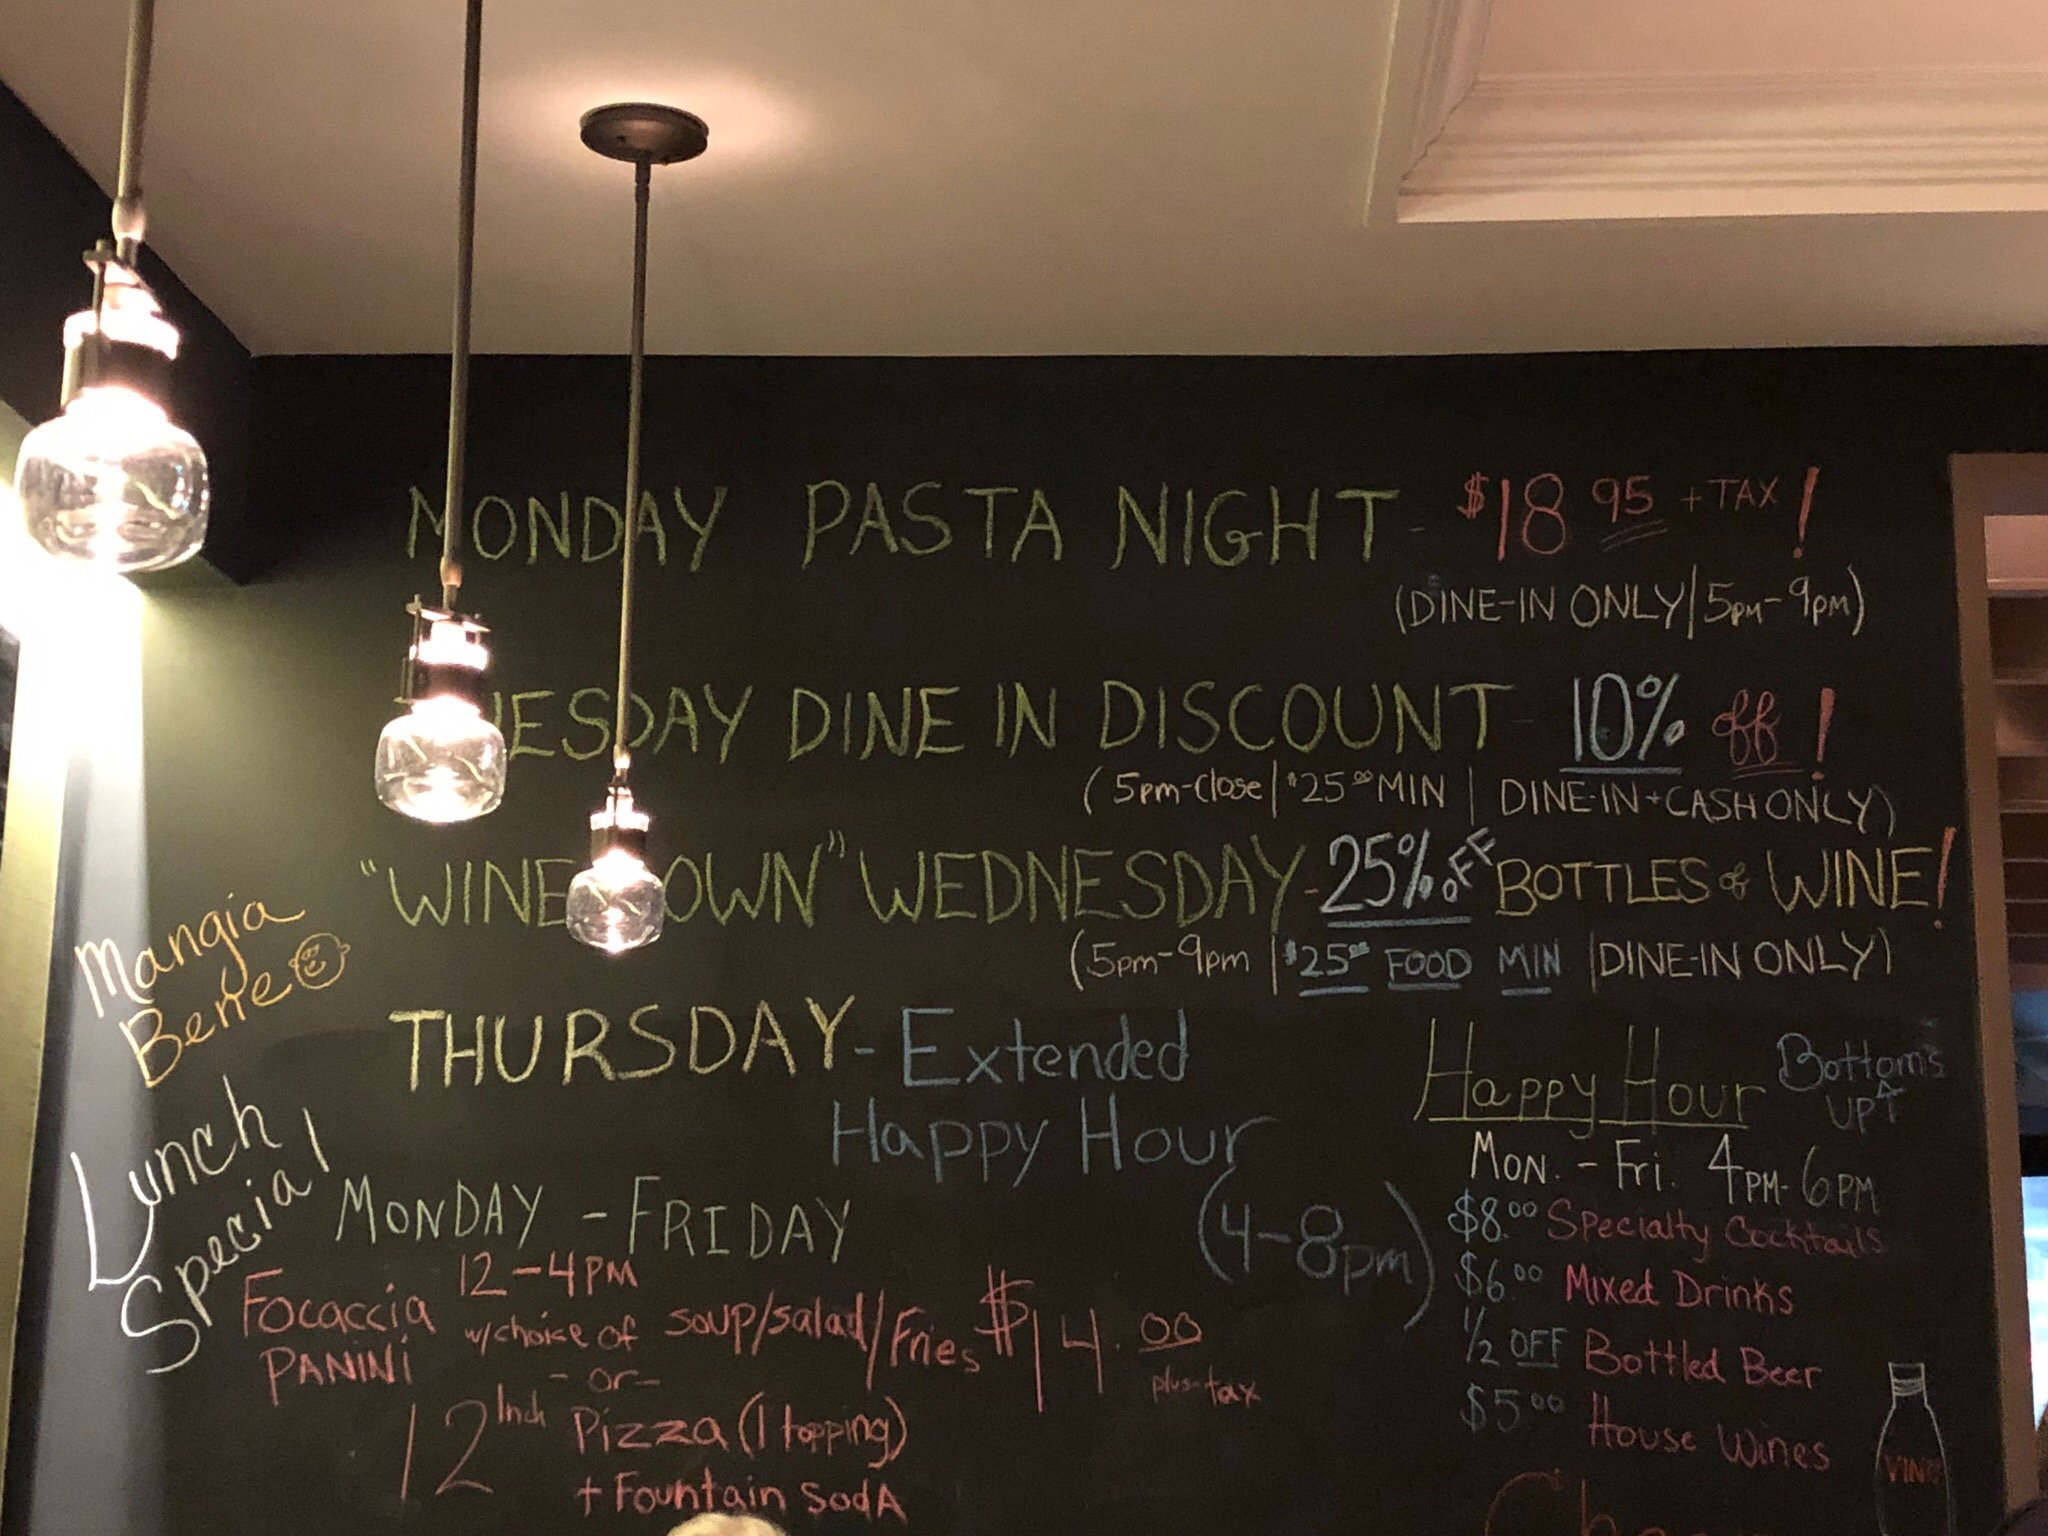 MONDAY PASTA NIGHT - $18 95 + TAX !
(DINE-IN ONLY | 5PM - 9PM)
TUESDAY DINE IN DISCOUNT - 10% off !
(5pm-Close | $25.00 MIN | DINE-IN + CASH ONLY)
"WINE DOWN" WEDNESDAY - 25% OFF BOTTLES of WINE!
(5pm-9pm | $25.00 FOOD MIN | DINE-IN ONLY)
Mangia
Bene
THURSDAY - Extended
Happy Hour
(4-8pm)
Lunch
Special
MONDAY - FRIDAY
12-4PM
Focaccia
PANINI
w/choice of soup/salad/Fries $14.00
plus tax
- or -
12 Inch Pizza (1 topping)
+ Fountain SodA
Happy Hour
Bottom's
UP
MON. - Fri. 4PM-6PM
$8.00 Specialty Cocktails
$6.00 Mixed Drinks
1/2 OFF Bottled Beer
$5.00 House Wines
VINO